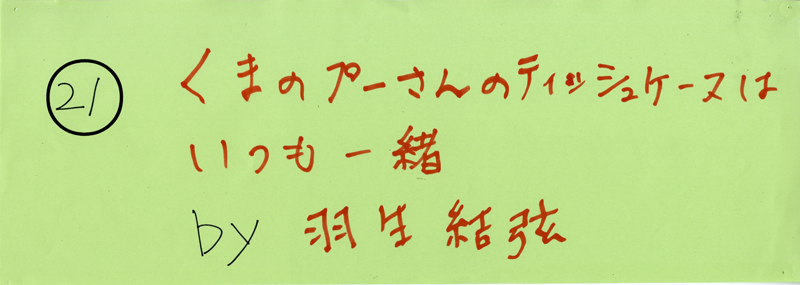 21 くまのプーさんのティッシュケースは
いつも一緒
by 羽生結弦